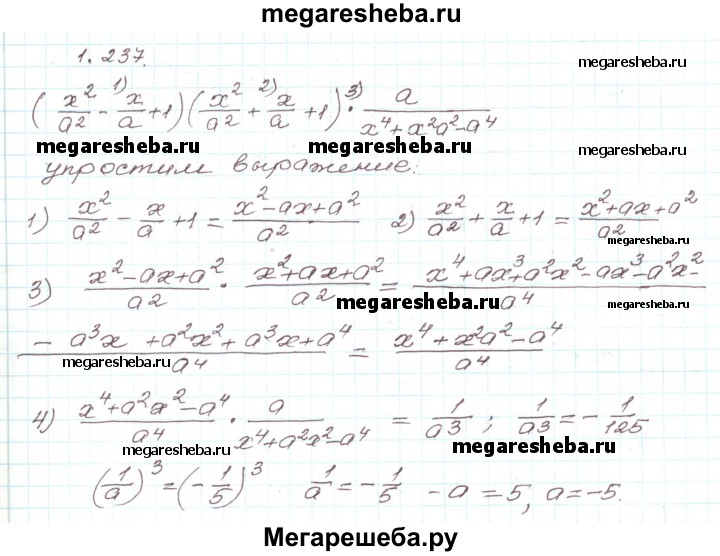 megaresheba.ru
1.237.
megaresheba.ru
(x²/a² - x/a + 1) 1) (x²/a² + x/a + 1) 2) · 3) a/(x⁴+x²a²-a⁴)
megaresheba.ru megaresheba.ru megaresheba.ru
упростим выражение:
megaresheba.ru
1) x²/a² - x/a + 1 = (x²-ax+a²)/a² 2) x²/a² + x/a + 1 = (x²+ax+a²)/a²
megaresheba.ru
3) (x²-ax+a²)/a² · (x²+ax+a²)/a² = (x⁴+ax³+a²x²-ax³-a²x²-)/a⁴
megaresheba.ru megaresheba.ru
(- a³x + a²x² + a³x + a⁴)/a⁴ = (x⁴+x²a²-a⁴)/a⁴
megaresheba.ru megaresheba.ru
4) (x⁴+a²x²-a⁴)/a⁴ · a/(x⁴+a²x²-a⁴) = 1/a³ ; 1/a³ = - 1/125
megaresheba.ru megaresheba.ru
(1/a)³ = (-1/5)³ 1/a = - 1/5 - a = 5, a = -5.
megaresheba.ru
Мегарешеба.ру